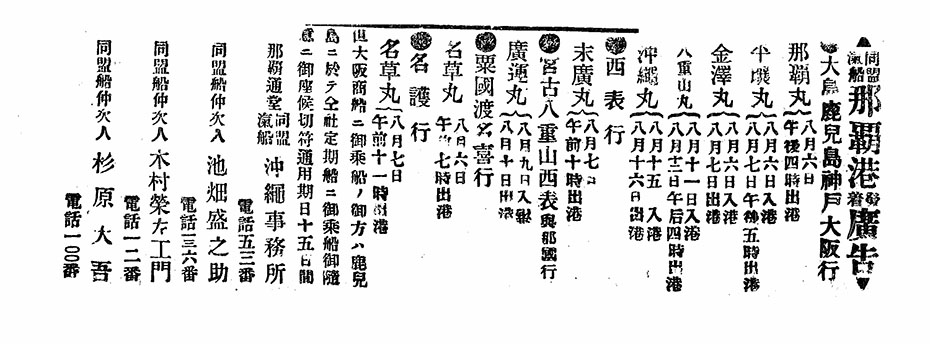 ▲同盟汽船 那覇港発着廣告▼
●大島鹿児島神戸大阪行
那覇丸 八月六日 午後四時出港
八月六日入港
八月七日午後五時出港
金澤丸 八月六日入港
八月七日出港
八重山丸 八月十一日入港
八月十二日午后四時出港
沖縄丸 八月十五 入港
八月十六日出港
西表行
末廣丸 八月七
午前十時出港
宮古八重山西表與那國行
廣運丸 八月九日入
八月十日出港
粟國渡名喜行
名草丸 八月六日
午 七時出港
名護行
名草丸 八月七日
午前十一時出港
但大阪商船ニ御乗船ノ御方ハ鹿児
島ニ於テ仝社定期船ニ御乗船御隨
意ニ御座候切符通用期日十五日間
那覇通堂 同盟汽船 沖縄事務所
電話五三番
同盟船仲次人 池畑盛之助
電話一三六番
同盟船仲次人 木村榮左工門
電話一二番
同盟船仲次人 杉原大吾
電話一〇〇番